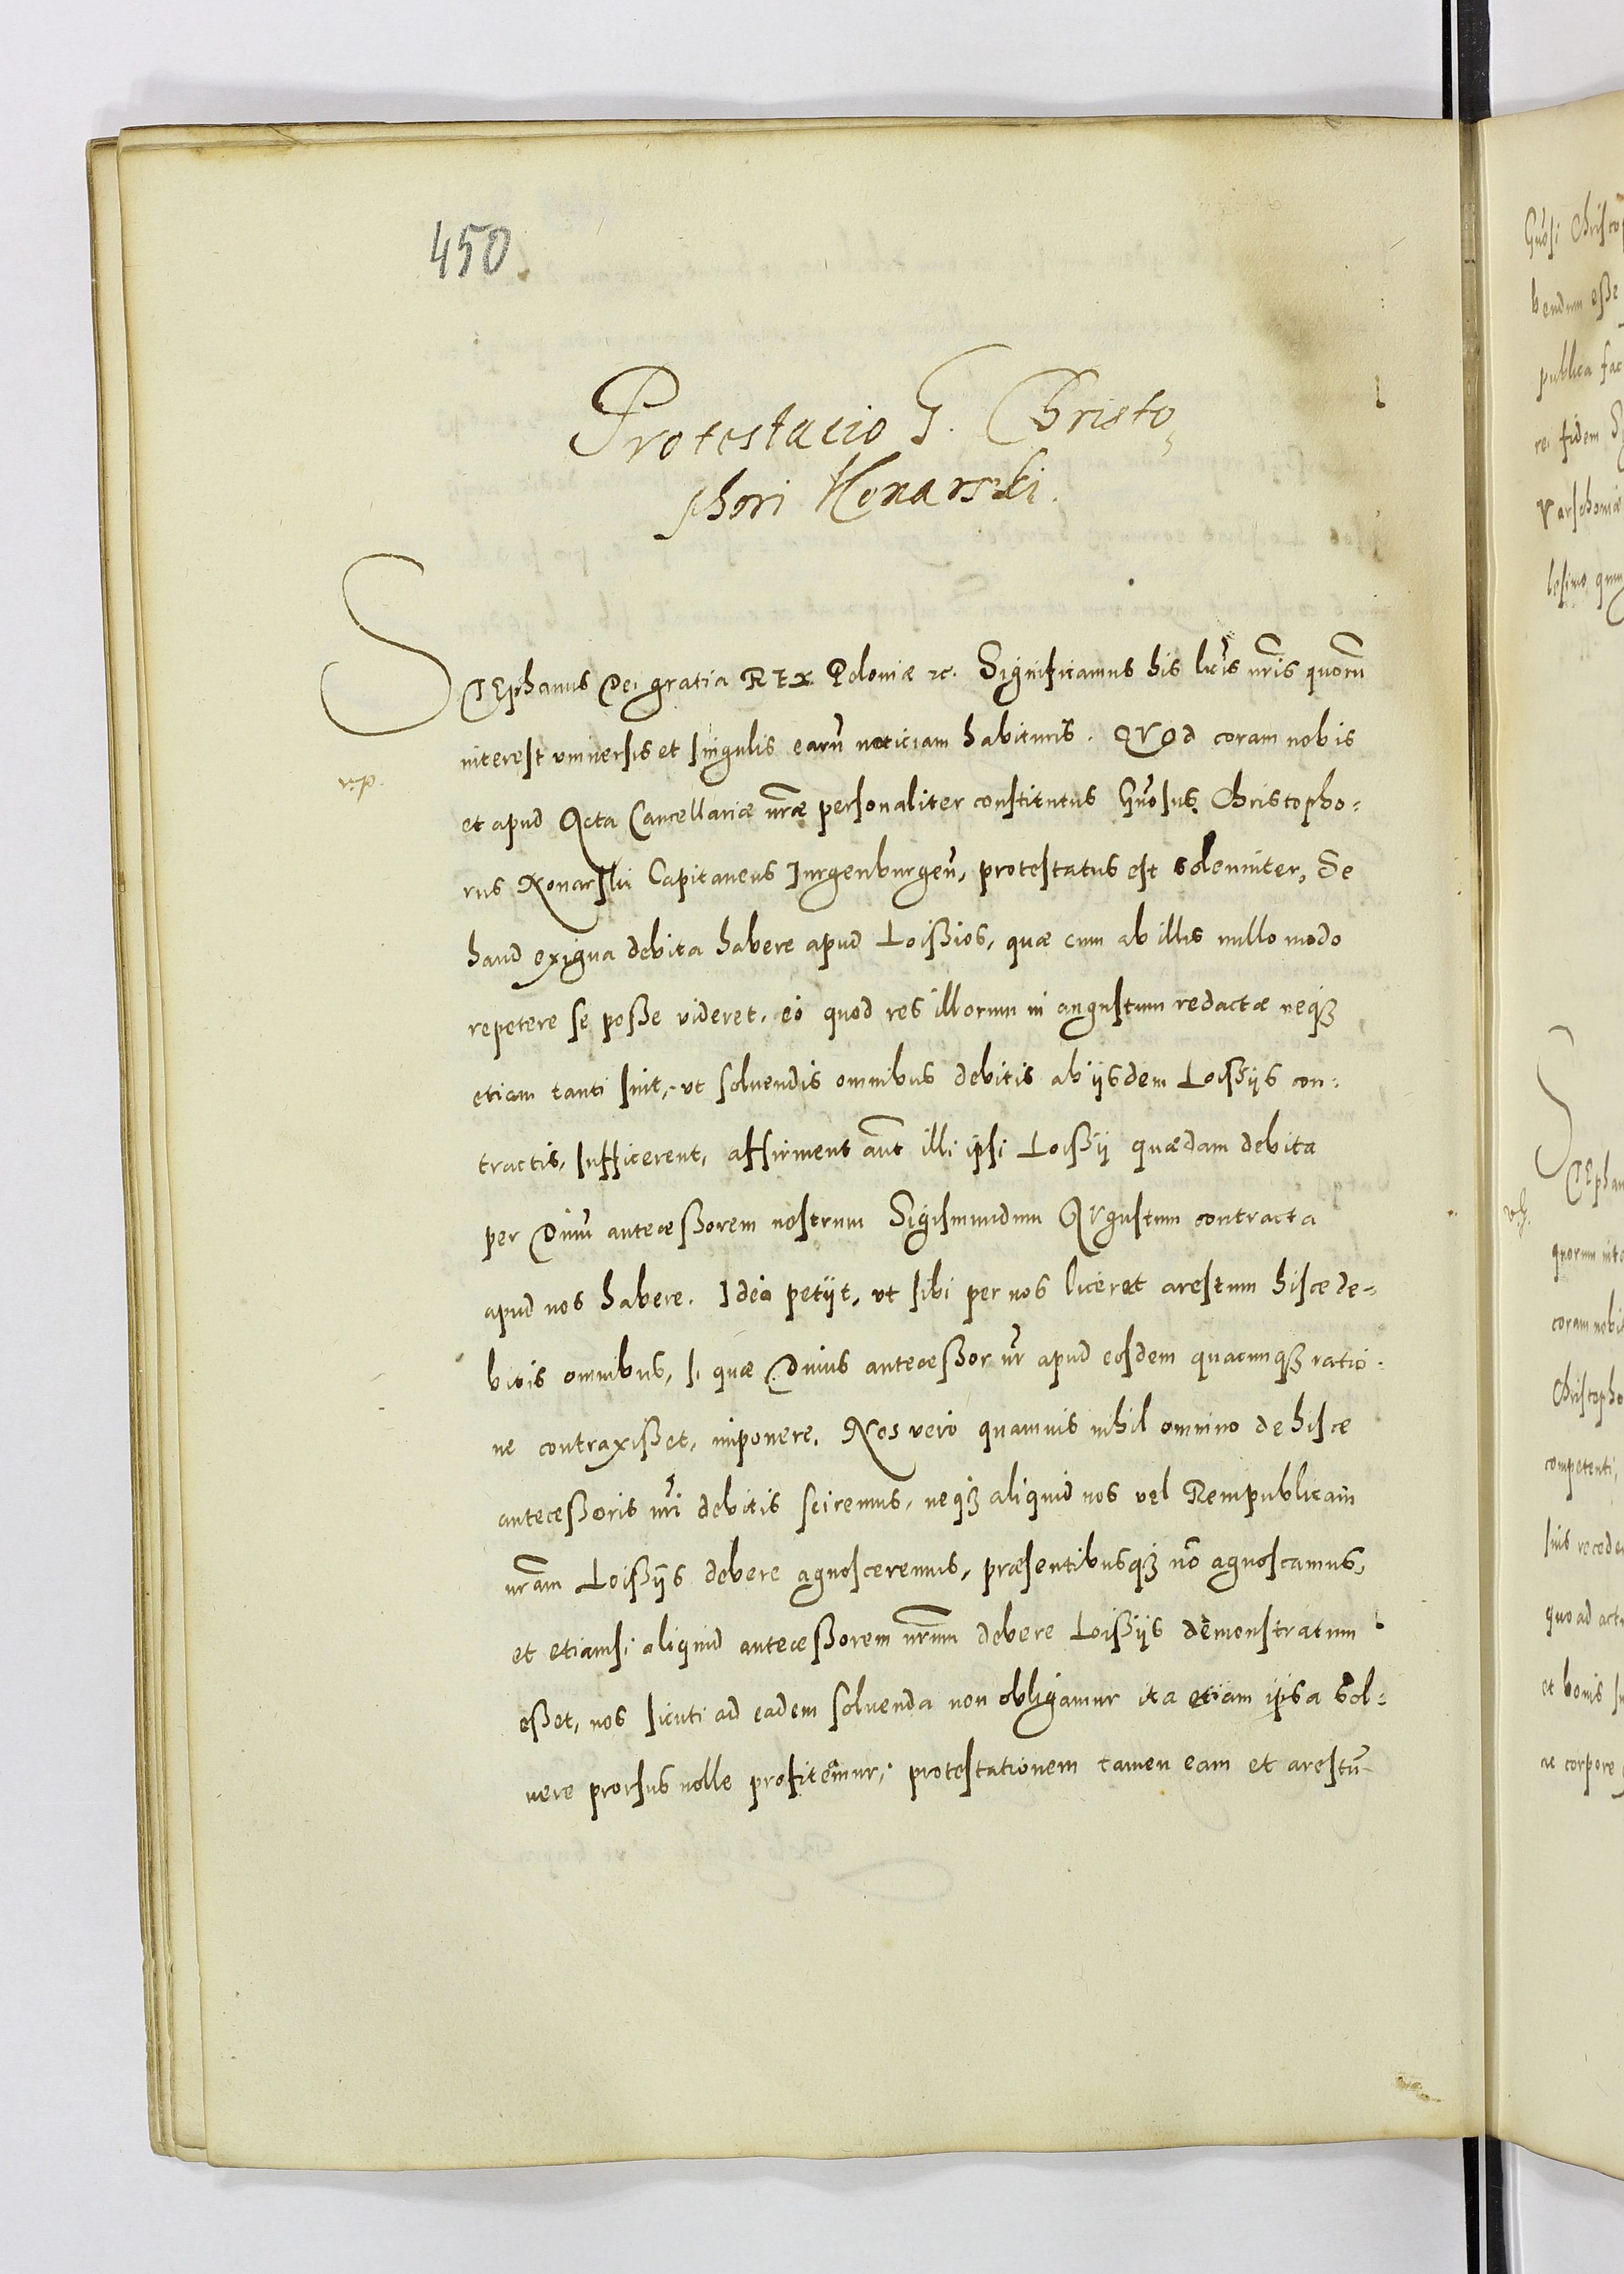 450
Protestacio G. Christo
phori Konarski.
STEphanus Dei gratia REX Poloniæ etc. Significamus his lrīs nr̄is quorū
interest vniuersis et singulis earū noticiam habituris. QVOd coram nobis
v.p.
et apud Acta Cancellariæ nr̄æ personaliter constitutus Gn̄osus Christopho=
rus Konarski Capitaneus Jurgenburgen̄, protestatus est solenniter, Se
haud exigua debita habere apud Loißios, quæ cum ab illis nullo modo
repetere se poße videret, eò quod res illorum in angustum redactæ neqꝫ
etiam tanti sint, vt soluendis omnibus debitis ab ijsdem Loißijs con=
tractis, sufficerent, affirment aūt illi ipsi Loißij quædam debita
per Diuū anteceßorem nostrum Sigismundum AVgustum contracta
apud nos habere. Ideò petijt, vt sibi per nos liceret arestum hisce de=
bitis omnibus, si quæ Diuus anteceßor nr̄ apud eosdem quacunqꝫ ratio=
ne contraxißet, imponere. Nos verò quamuis nihil omnino de hisce
anteceßoris nr̄i debitis sciremus, neqꝫ aliquid nos vel Rempublicam
nr̄am Loißijs debere agnosceremus, præsentibusqꝫ nō agnoscamus,
et etiamsi aliquid anteceßorem nr̄um debere Loißijs demonstratum
eßet, nos sicuti ad eadem soluenda non obligamur ita etiam ipsa sol=
uere prorsus nolle profitemur, protestationem tamen eam et arestū
Gn̄osi Christo
bendum eße
publica fac
re. fidem S
Varschouiæ
lesimo quin
STEphan
quorum inte
coram nobi
Christopho
competenti,
suis recede
quo ad actu
et bonis su
ac corpore